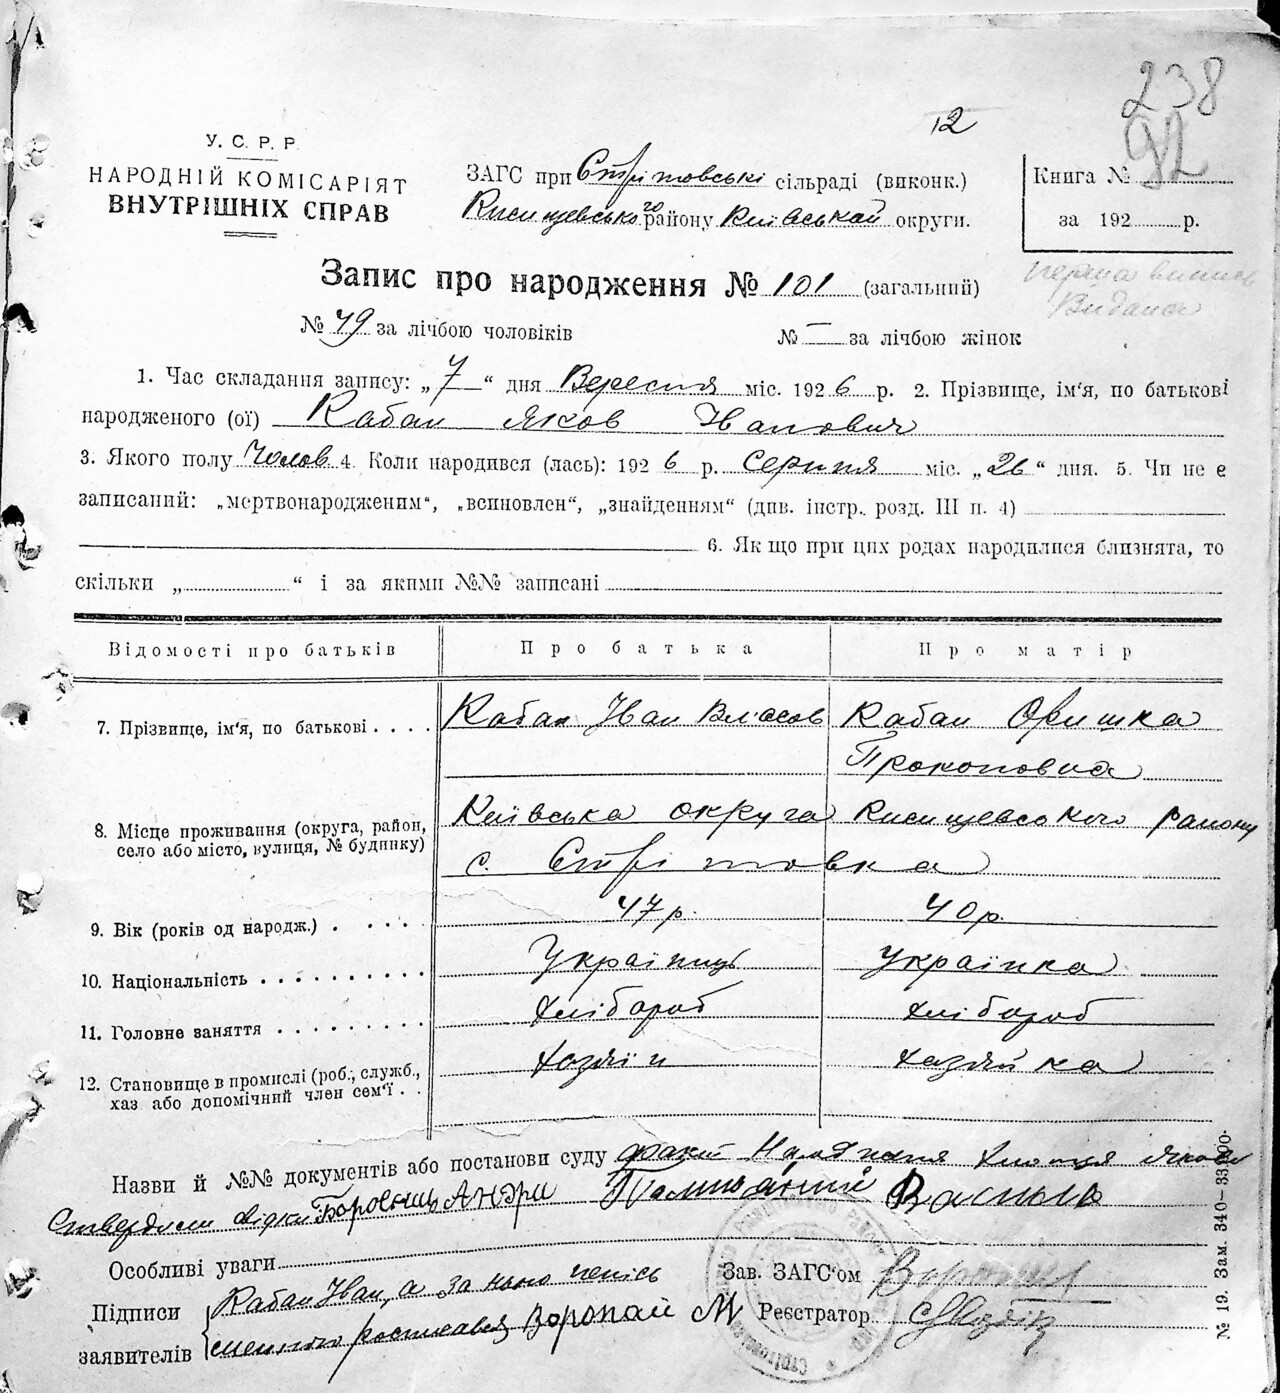 238
12
92
У. С. Р. Р.
НАРОДНІЙ КОМІСАРІЯТ
ВНУТРІШНІХ СПРАВ
ЗАГС при Стрітовські сільраді (виконк.)
району Київській округи.
Книга №
за 192 р.
перша випись
Видана
Запис про народження № 101 (загальний)
№ 79 за лічбою чоловіків № — за лічбою жінок
1. Час складання запису: „7“ дня Вересня міс. 1926 р. 2. Прізвище, ім'я, по батькові
народженого (ої) Кабан Яков Іванович
3. Якого полу Чолов 4. Коли народився (лась): 1926 р. серпня міс. „26“ дня. 5. Чи не є
записаний: „мертвонародженим“, „всиновлен“, „знайденням“ (дпв. інстр. розд. III п. 4)
6. Якщо при цих родах народилися близнята, то
скільки „ “ і за якими №№ записані
Відомості про батьків Про батька Про матір
7. Прізвище, ім'я, по батькові . . . . Кабан Іван Власов Кабан Оришка
Прокоповна
8. Місце проживання (округа, район, село або місто, вулиця, № будинку) Київська округа району
с. Стрітовка
9. Вік (років од народж.) . . . . . 47 р. 40 р.
10. Національність . . . . . . . . . . Українць Українка
11. Головне заняття . . . . . . . . . Хлібороб Хлібороб
12. Становище в промислі (роб., служб.,
хаз або допомічний член сем'ї . . Хозяїн Хазяйка
Назви й №№ документів або постанови суду факт Хлопця Якова
Ствердили свідки Андри Василь
Особливі уваги
Підписи
заявителів
Кабан Іван, а за
Воропай М
Зав. ЗАГС'ом
Реєстратор
№ 19. Зам. 340—33.000.